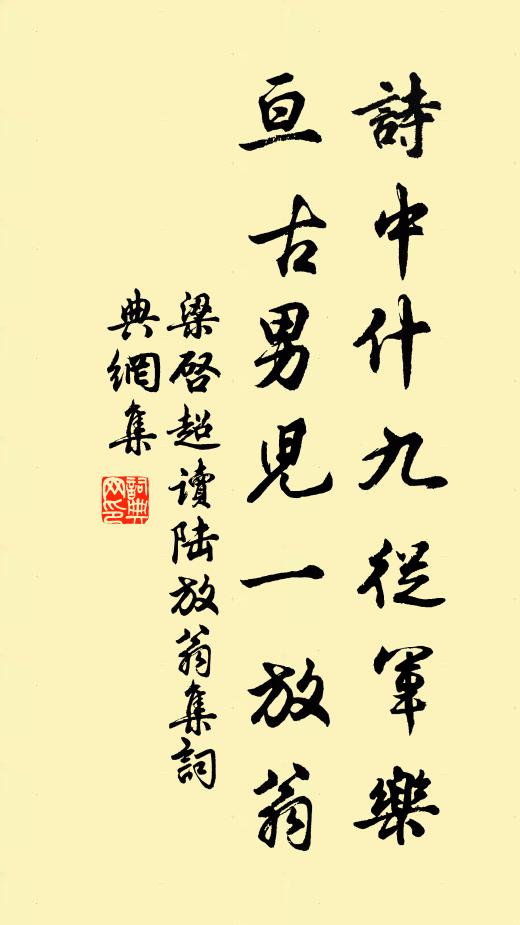 詩中什九從軍樂
亘古男兒一放翁
梁啓超讀陸放翁集詞
典網集
詞典網印